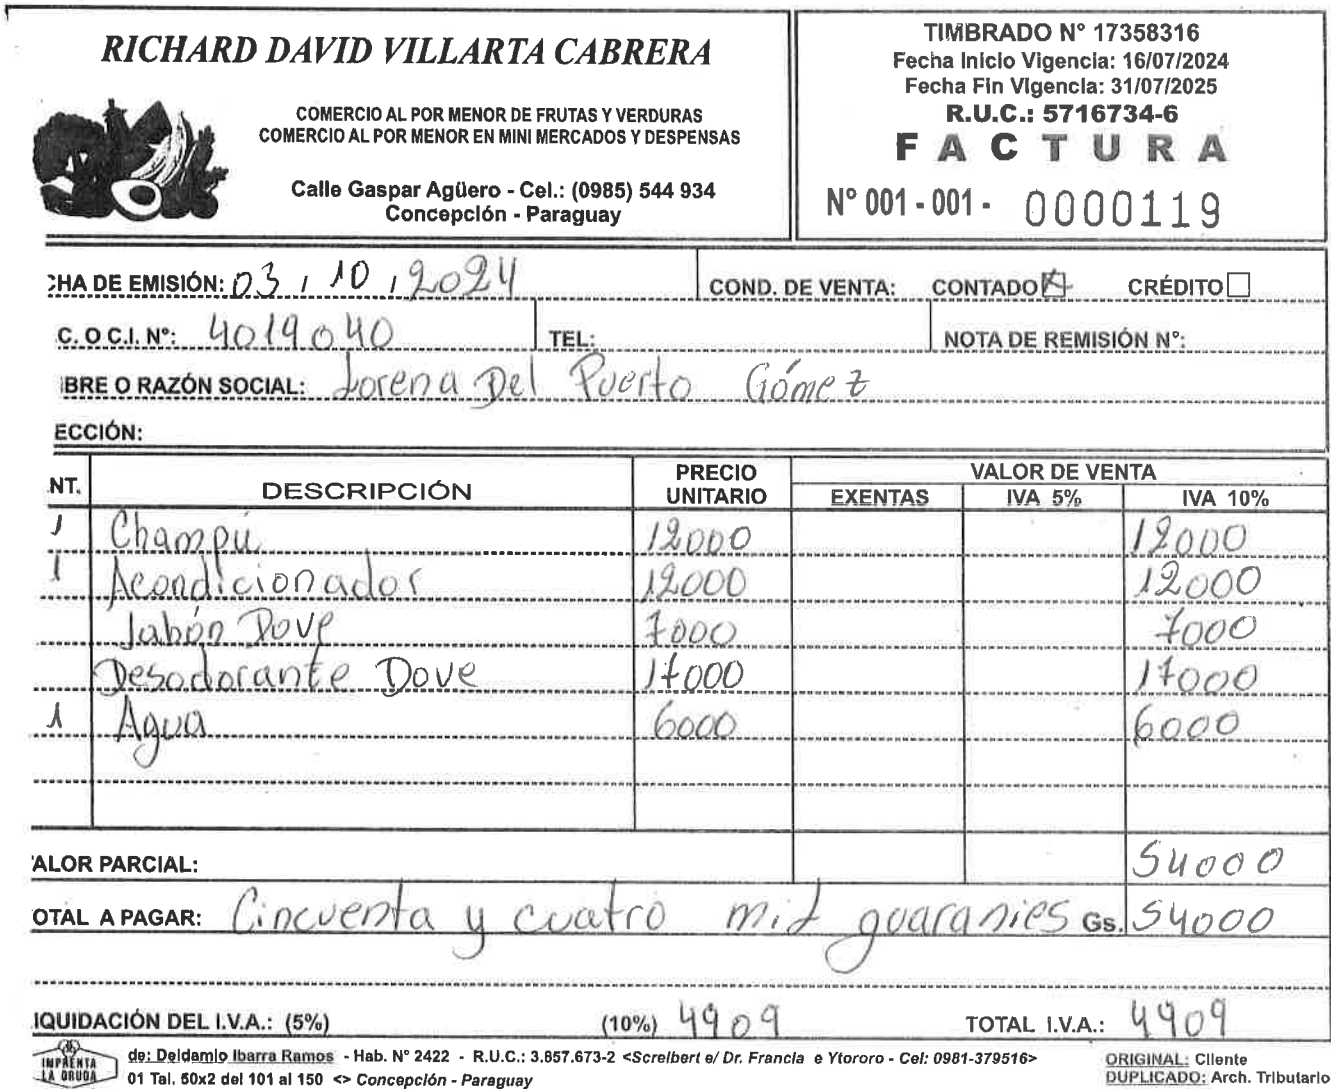 RICHARD DAVID VILLARTA CABRERA
COMERCIO AL POR MENOR DE FRUTAS Y VERDURAS
COMERCIO AL POR MENOR EN MINI MERCADOS Y DESPENSAS
Calle Gaspar Agüero - Cel.: (0985) 544 934
Concepción - Paraguay
TIMBRADO N° 17358316
Fecha Inicio Vigencia: 16/07/2024
Fecha Fin Vigencia: 31/07/2025
R.U.C.: 5716734-6
FACTURA
N° 001 - 001 - 0000119
CHA DE EMISIÓN: 03 / 10 / 2024 COND. DE VENTA: CONTADO CRÉDITO
C. O C.I. N°: 4019040 TEL: NOTA DE REMISIÓN N°:
BRE O RAZÓN SOCIAL: Lorena Del Puerto Gómez
ECCIÓN:
NT. DESCRIPCIÓN PRECIO UNITARIO VALOR DE VENTA
EXENTAS IVA 5% IVA 10%
1 Champú 12000 12000
1 Acondicionador 12000 12000
Jabón Dove 7000 7000
Desodorante Dove 17000 17000
1 Agua 6000 6000
ALOR PARCIAL: 54000
OTAL A PAGAR: Cincuenta y cuatro mil guaranies Gs. 54000
IQUIDACIÓN DEL I.V.A.: (5%) (10%) 4909 TOTAL I.V.A.: 4909
IMPRENTA
LA ORUGA
de: Deldamio Ibarra Ramos - Hab. N° 2422 - R.U.C.: 3.857.673-2 <Screibert e/ Dr. Francia e Ytororo - Cel: 0981-379516>
01 Tal. 50x2 del 101 al 150 <> Concepción - Paraguay
ORIGINAL: Cliente
DUPLICADO: Arch. Tributario